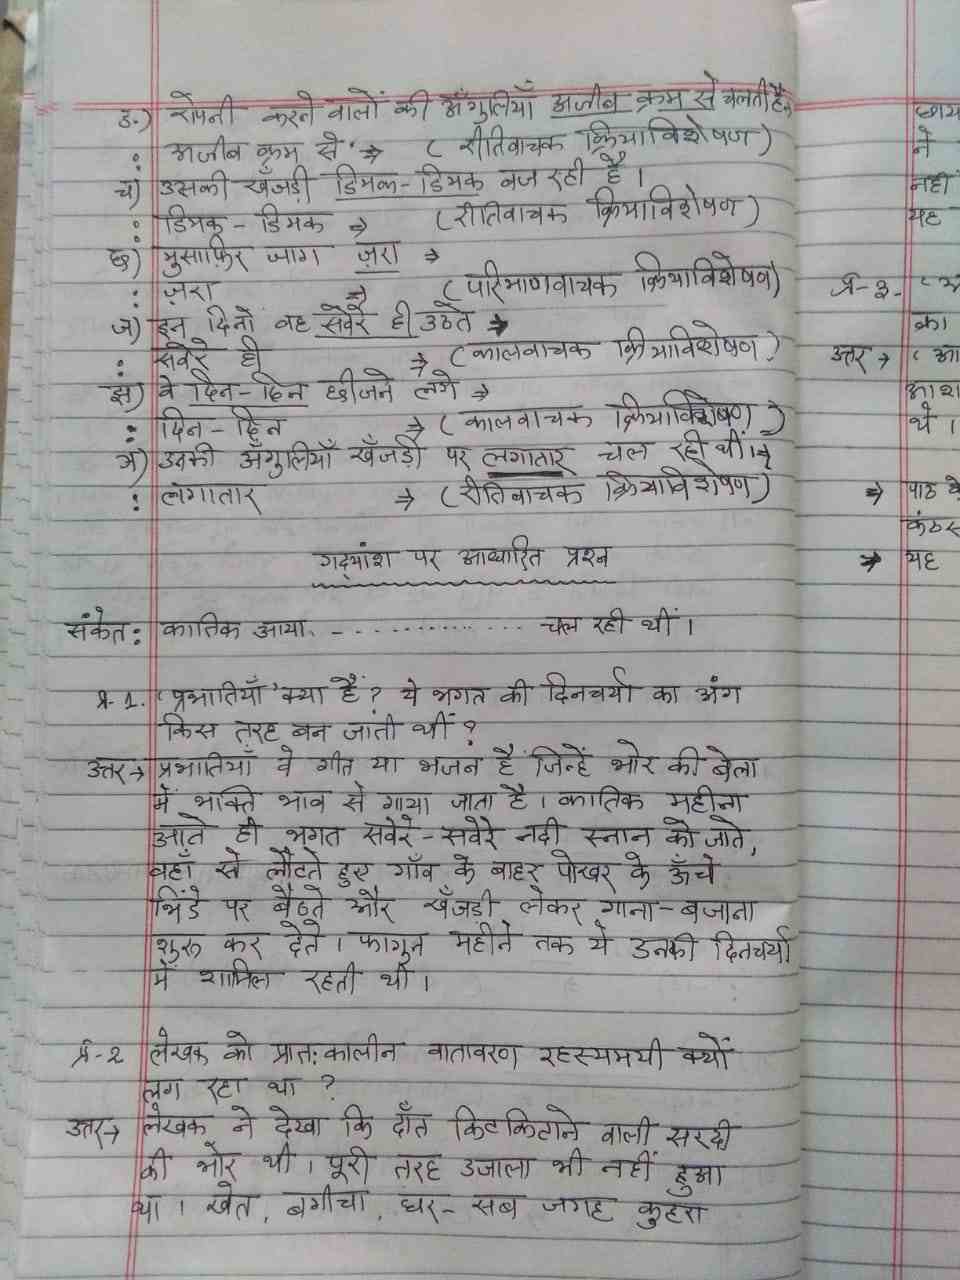 ङ.) रोपनी करने वालों की अँगुलियाँ अजीब क्रम से चलती हैं
: अजीब क्रम से ⇒ (रीतिवाचक क्रियाविशेषण)
च) उसकी खँजड़ी डिमक-डिमक बज रही है।
: डिमक-डिमक ⇒ (रीतिवाचक क्रियाविशेषण)
छ) मुसाफ़िर जाग ज़रा ⇒
: ज़रा ⇒ (परिमाणवाचक क्रियाविशेषण)
ज) इन दिनों वह सवेरे ही उठते ⇒
: सवेरे ही ⇒ (कालवाचक क्रियाविशेषण)
झ) वे दिन-दिन छीजने लगे ⇒
: दिन-दिन ⇒ (कालवाचक क्रियाविशेषण)
ञ) उनकी अँगुलियाँ खँजड़ी पर लगातार चल रही थीं।⇒
: लगातार ⇒ (रीतिवाचक क्रियाविशेषण)
गद्यांश पर आधारित प्रश्न
संकेत: कातिक आया. - .............. चल रही थीं।
प्र-1. 'प्रभातियाँ' क्या हैं? ये भगत की दिनचर्या का अंग
किस तरह बन जाती थीं?
उत्तर→ प्रभातियाँ वे गीत या भजन हैं जिन्हें भोर की बेला
में भक्ति भाव से गाया जाता है। कातिक महीना
आते ही भगत सवेरे-सवेरे नदी स्नान को जाते,
वहाँ से लौटते हुए गाँव के बाहर पोखर के ऊँचे
भिंडे पर बैठते और खँजड़ी लेकर गाना-बजाना
शुरू कर देते। फागुन महीने तक ये उनकी दिनचर्या
में शामिल रहती थी।
प्र-2 लेखक को प्रात:कालीन वातावरण रहस्यमयी क्यों
लग रहा था ?
उत्तर→ लेखक ने देखा कि दाँत किटकिटाने वाली सरदी
की भोर थी। पूरी तरह उजाला भी नहीं हुआ
था। खेत, बगीचा, घर- सब जगह कुहरा
छाय
ने
नहीं
यह
प्र-3-
का
उत्तर →
आश
थे।
⇒ पाठ के
कंठस
⇒ यह